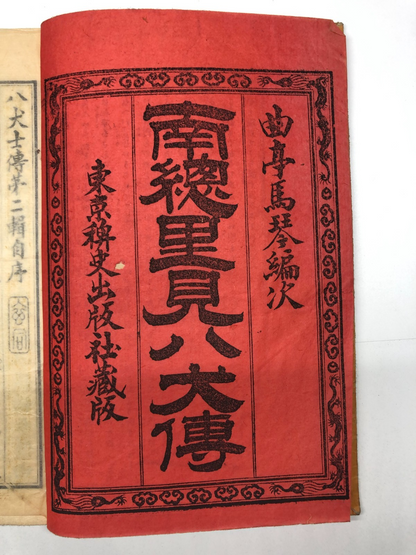 曲亭馬琴編次
南總里見八犬傳
東京稗史出版社藏版
八犬士傳苐二輯自序